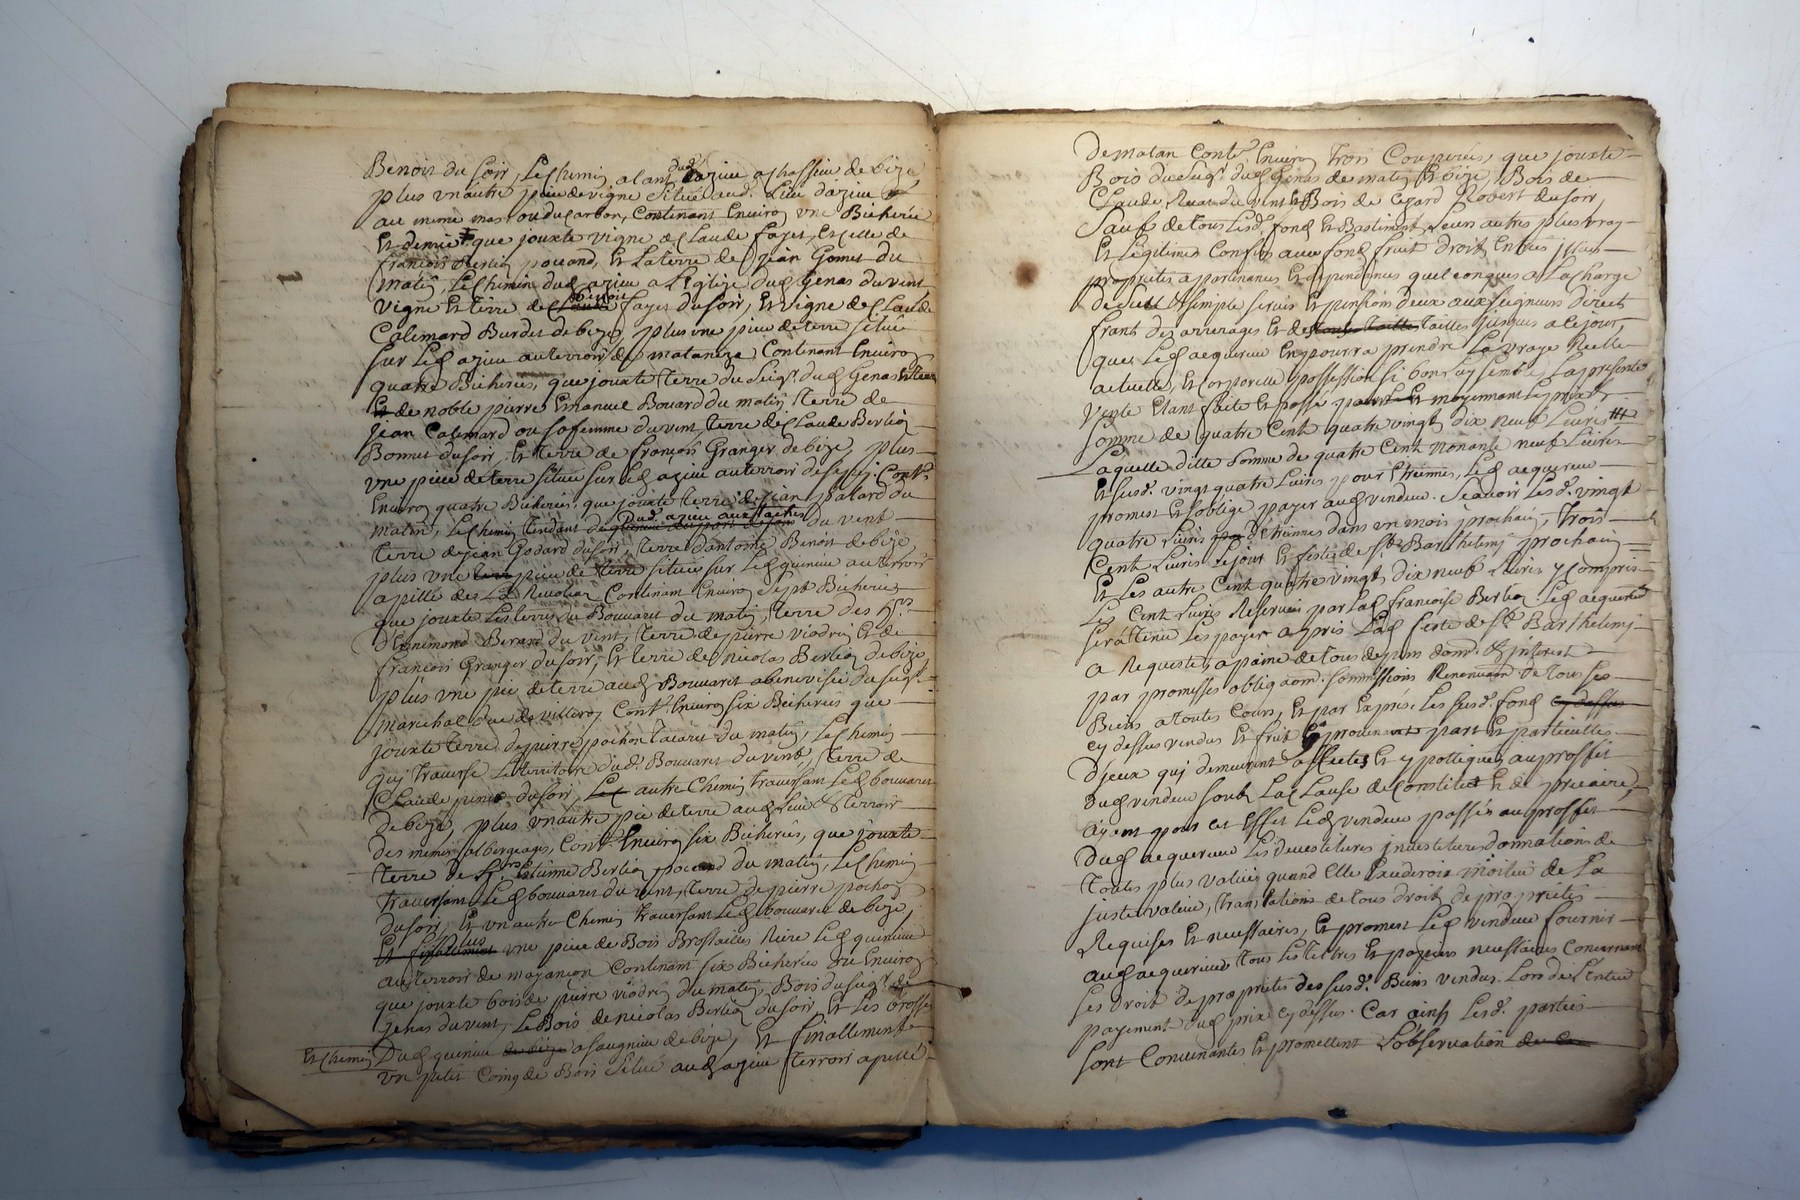 Benoit du soir, Le chemin alant dud. azieu a chassieu de bize
plus un autre piece de vigne situee aud. Lieu dazieu
au meme mas ou du carbon, Contenant Environ une Bicheree
Et demie que jouxte vigne de Claude fayet, Et celle de
francois Berlioz pouand, Et La terre de jean Gomet du
matin, Le Chemin dud. azieu a L'eglize dud. Genas du vent
vigne Et terre de benoit fayet du soir, Et vigne de Claude
Calemard Burdet de bize, plus une piece de terre situee
sur Led. azieu au terroir de mataneza Contenant Environ
quatre Bicherees, que jouxte terre du seigr. dud. Genas Et terre
de noble pierre Emanuel Bouard du matin terre de
jean Calemard ou sa femme du vent, terre de Claude Berlioz
Bonnet du soir, Et terre de francois Granger de bize, plus
une piece de terre situee sur Led. azieu au terroir de Cont.
Environ quatre Bicherees, que jouxte terre de jean palard du
matin, Le Chemin tendant dud. azieu aux du vent
terre de jean Godard du soir, terre d'antoine Benoit de bize
plus une piece de terre situee sur Led. quinieu au terroir
apelle de La Revolion Contenant Environ sept Bicherees
que jouxte Les terres du Bouvaret du matin, terre des hrs.
d'Ennemond Berard du vent, terre de pierre viodrin Et de
francois Granger du soir, Et terre de nicolas Berlioz de bize
plus une piece de terre aud. Bouvaret abenevisee du seigr.
marechal duc de villeroy Cont. Environ six Bicherees que
jouxte terre de pierre pochon tacaret du matin, Le Chemin
qui traverse Le territoire dud. Bouvaret du vent, terre de
Claude du soir, autre Chemin traversant Led. bouvaret
de bize, plus un autre piece de terre aud. Lieu & terroir
des memes albergeages, Cont. Environ six Bicherees, que jouxte
terre de hrs. Estienne Berlioz pocard du matin, Le Chemin
traversant Led. bouvaret du vent, terre de pierre pochon
du soir, Et un autre Chemin traversant Led. bouvaret de bize,
plus une piece de Bois Brossailles Riere Led. quinieu
au terroir de mayancon Contenant six Bicherees ou Environ
que jouxte bois de pierre viodrin du matin, Bois du seigr. de
genas du vent, Le Bois de nicolas Berlioz du soir Et Les brosses
Et Chemin Dud. quinieu a saugnieu de bize, Et finallement
un petit Coing de Bois situé aud. azieu terroir apellé
De matan Cont. Environ trois Couperées, que jouxte
Bois du seigr. dud. Genas de matin Et bize, Bois de
Claude du vent Et Bois de Robert du soir,
Sauf de tous Lesd. fonds Et Bastiment Leurs autres plus vray
Et Legitimes Confins avec fond fruit droit Entrées issues
proprietes apartenances Et dependances quelconques a La Charge
de simple servis Et pensions deux aux seigneurs direct
franc des arrerages Et de tailles jusques a ce jour,
ques Led. acquereur En pourra prendre La vraye Reelle
actuelle, Et corporelle possession si bon Luy semble, La presente
vente Etant faite Et passé moyennant Le prix &
somme de quatre Cent quatre vingt dix neuf Livres
Laquelle ditte somme de quatre Cent nonante neuf Livres
Et susd. vingt quatre Livres pour Etreinnes, Led. acquereur
promet Et s'oblige payer aud. vendeur. Scavoir Lesd. vingt
quatre Livres d'Etreinnes dans un mois prochain, Trois
Cent Livres Le jour Et feste de st. Barthelemy prochain
Et Les autre Cent quatre vingt dix neuf Livres y Compris
Les Cent Livres Reservees par Lad. francoise Berlioz Led. acquereur
sera tenu Les payer apres Lad. feste de st. Barthelemy
a Requeste, a paine de tous depens dom. & interest
par promesses obligaon. sommissions Renonciaon de tous ses
Biens a toutes Cours, Et par Exprés Les susd. fonds
cy dessus vendus Et fruit En provenant part Et particulles
d'jeux qui demeurent affectes Et ypotiques au proffit
dud. vendeur soubz La Clause de Constitut Et de précaire,
ayant pour cet Effet Led. vendeur passés au proffit
Dud. acquereur Les devestitures investitures donnations de
toutes plus valües quand Elle Excederoit moitiée de La
juste valeur, translations de tous droit de proprietés
Requises Et necessaires, Et promet Led. vendeur fournir
aud. acquereur tous Les tittres Et papiers necessaires Concernant
Ses droit de proprietes des susd. Biens vendus. Lors de L'entier
payement dud. prix cy dessus. Car ainsy Lesd. parties
sont Convenantes Et promettent L'observation